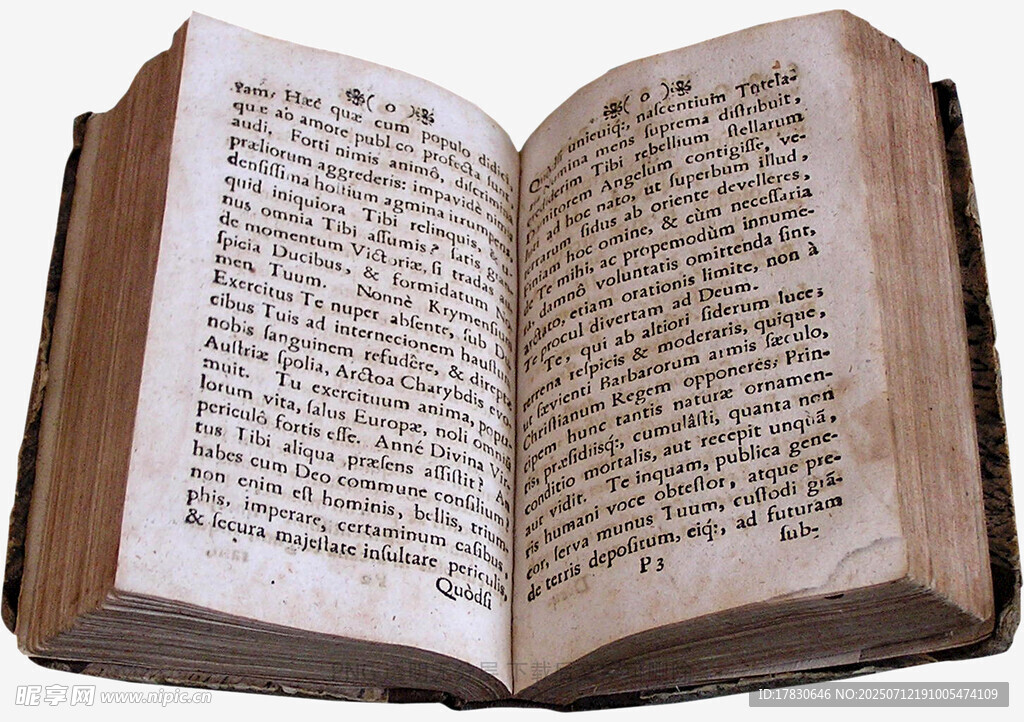 ( o )
ram, Hæc quæ cum populo didici,
quæ ab amore publ co profecta sunt,
audi. Forti nimis animô, discrimina
præliorum aggrederis: impavidè nimis
densissima hostium agmina irrumpens
quid iniquiora Tibi relinquis, &
nus omnia Tibi assumis? satis
de momentum Victoriæ, si tradas
spicia Ducibus, & formidatum No-
men Tuum. Nonnè Krymensium
Exercitus Te nuper absente, sub Du-
cibus Tuis ad internecionem haustum
nobis sanguinem refudêre, & direpta
Austriæ spolia, Arctoa Charybdis evo-
muit. Tu exercituum anima, popu-
lorum vita, salus Europæ, noli omnia
periculô fortis esse. Anné Divina Vir-
tus Tibi aliqua præsens assistit? An
habes cum Deo commune consilium?
non enim est hominis, bellis, trium-
phis, imperare, certaminum casibus,
& secura majestate insultare periculis,
Quòdsi
( o )
Quòdsi unieuiq;, nascentium Tutela-
Numina mens suprema distribuit,
crediderim Tibi rebellium stellarum
Domitorem Angelum contigisse, ve-
ut ad hoc nato, ut superbum illud,
terrarum sidus ab oriente develleres,
Finiam hoc omine, & cùm necessaria
de Te mihi, ac propemodùm innume-
ra, damnô voluntatis omittenda sint,
arctato, etiam orationis limite, non à
Te procul divertam ad Deum.
Te, qui ab altiori siderum luce;
terrena respicis & moderaris, quique,
ut sævienti Barbarorum armis sæculo,
Christianum Regem opponeres, Prin-
cipem hunc tantis naturæ ornamen-
tis, præsidiisq;, cumulâsti, quanta non
conditio mortalis, aut recepit unquã,
aut vidit. Te inquam, publica gene-
ris humani voce obtestor, atque pre-
cor, serva munus Tuum, custodi grã-
de terris depositum, eiq;, ad futuram
P 3
sub-
昵享网 www.nipic.cn
ID:17830646 NO:20250712191005474109